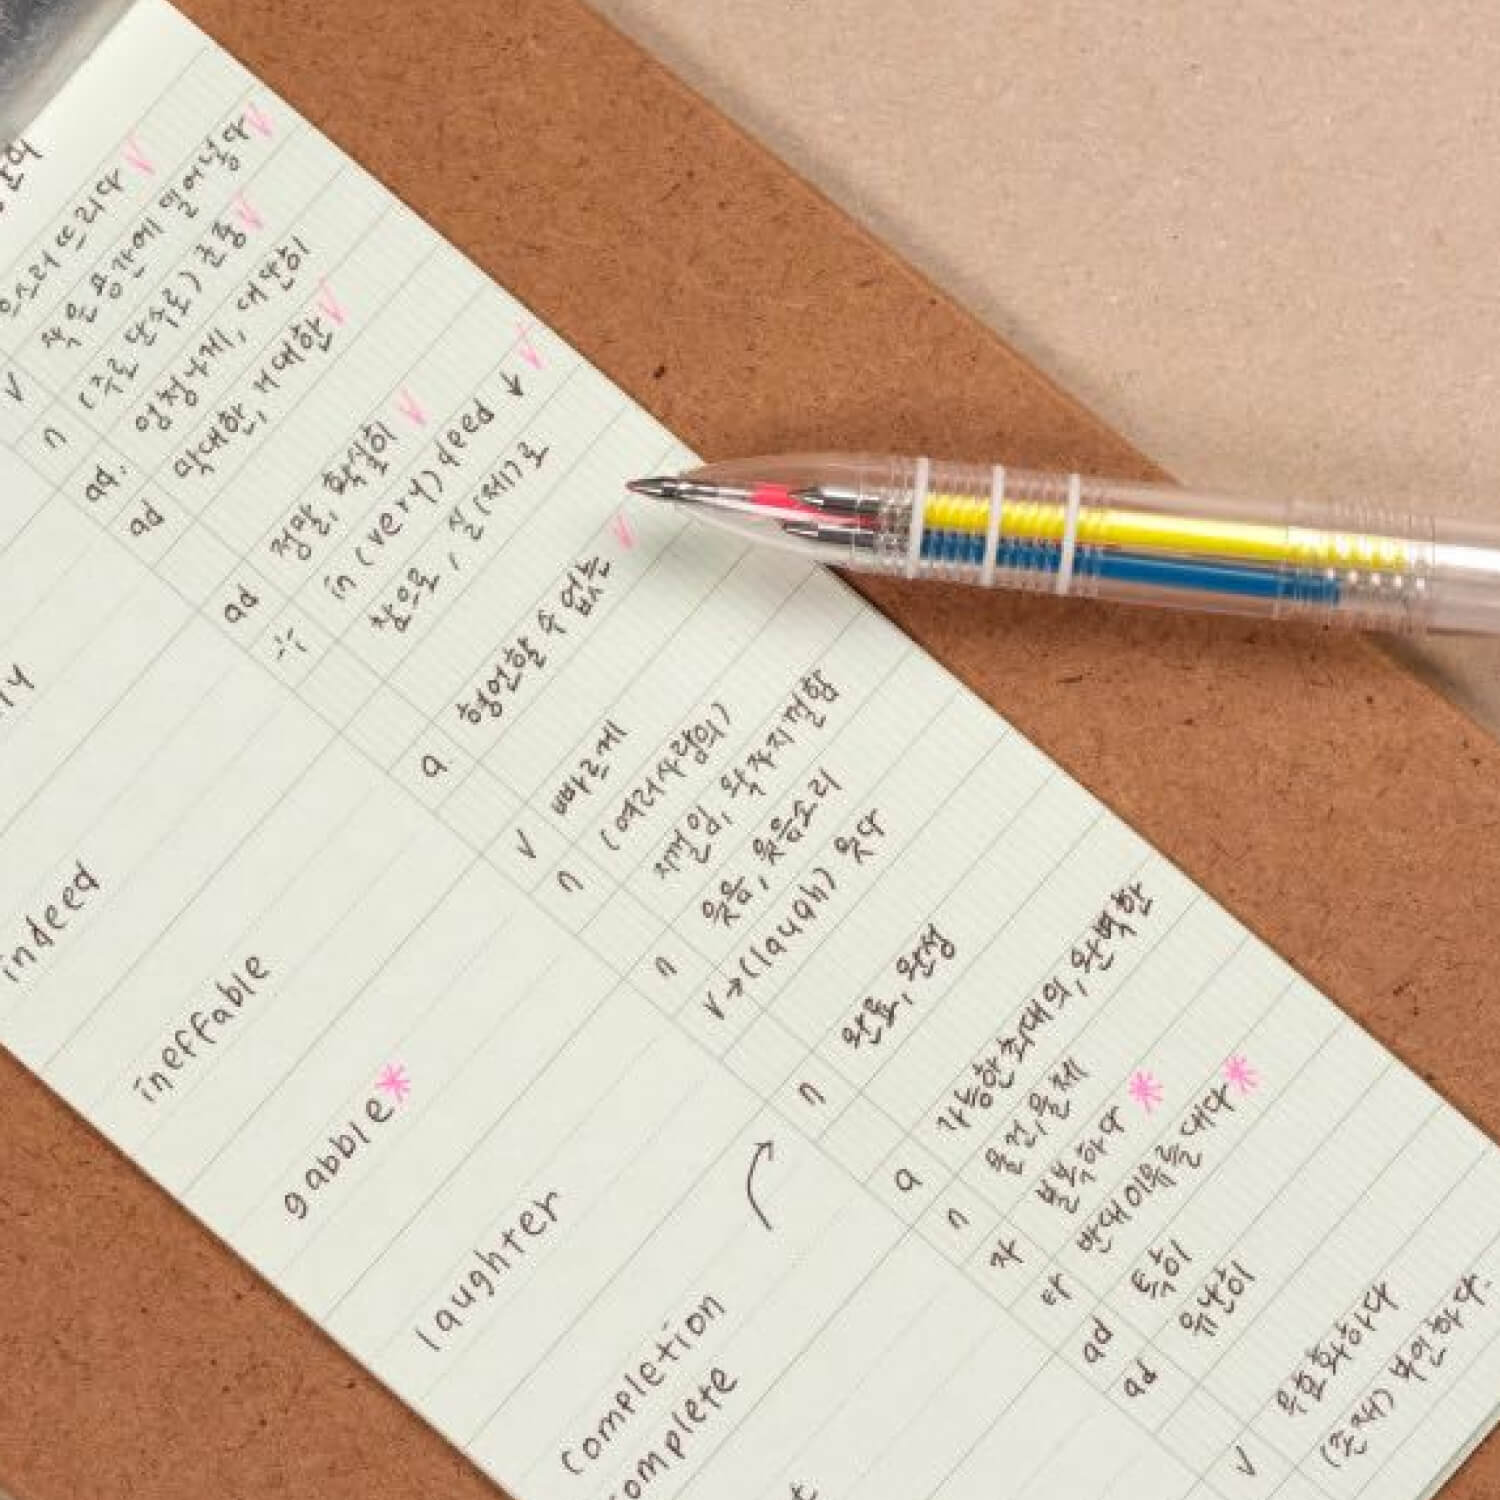 으스러뜨리다
v 작은 공간에 밀어넣다
n (주로 단수로) 군중
ad. 엄청나게, 대단히
ad 막대한, 거대한
indeed
ad 정말, 확실히
in (very) deed ↓
참으로, 실(제)로
ineffable
a 형언할 수 없는
gabble*
v 빠르게
n (여러사람의)
재밌임, 왁자지껄함
laughter
n 웃음, 웃음소리
v→(laugh) 웃다
completion
n 완료, 완성
complete
a 가능한 최대의, 완벽한
n 물건, 물체
자 불복하다 *
타 반대이유를 대다 *
ad 특히
ad 유난히
v 무효화하다
(존재) 부인하다.